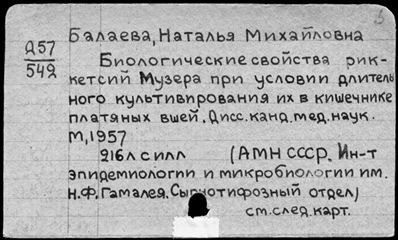 Д57
549
Балаева, Наталья Михайловна
Биологические свойства рик-
кетсий Музера при условии длитель
ного культивпрования их в кишечнике
платяных вшей. Дисс. канд. мед. наук.
М, 1957
216 л с илл (АМН СССР. Ин-т
эпидемиологии и микробиологии им.
Н.Ф. Гамалея. Сыпнотифозный отдел)
см. след. карт.